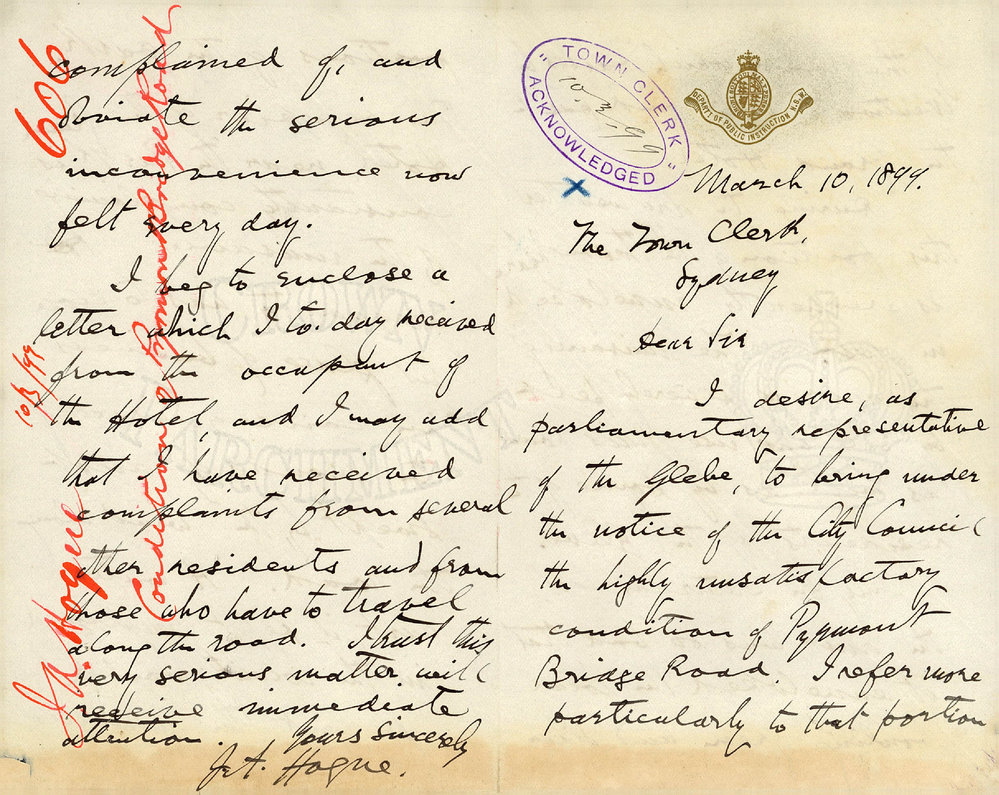 " TOWN CLERK "
10.3.99
ACKNOWLEDGED
DEPART. OF PUBLIC INSTRUCTION N.S.W.
March 10, 1899.
The Town Clerk,
Sydney
Dear Sir
I desire, as
parliamentary representative
of the Glebe, to bring under
the notice of the City Council
the highly unsatisfactory
condition of Pyrmont
Bridge Road. I refer more
particularly to that portion
complained of, and
obviate the serious
inconvenience now
felt every day.
I beg to enclose a
letter which I to-day received
from the occupant of
the Hotel, and I may add
that I have received
complaints from several
other residents and from
those who have to travel
along the road. I trust this
very serious matter will
receive immediate
attention. Yours Sincerely
J.A. Hogue.
606
10/3/99
J.A. Hogue
Condition of Pyrmont Bridge Road